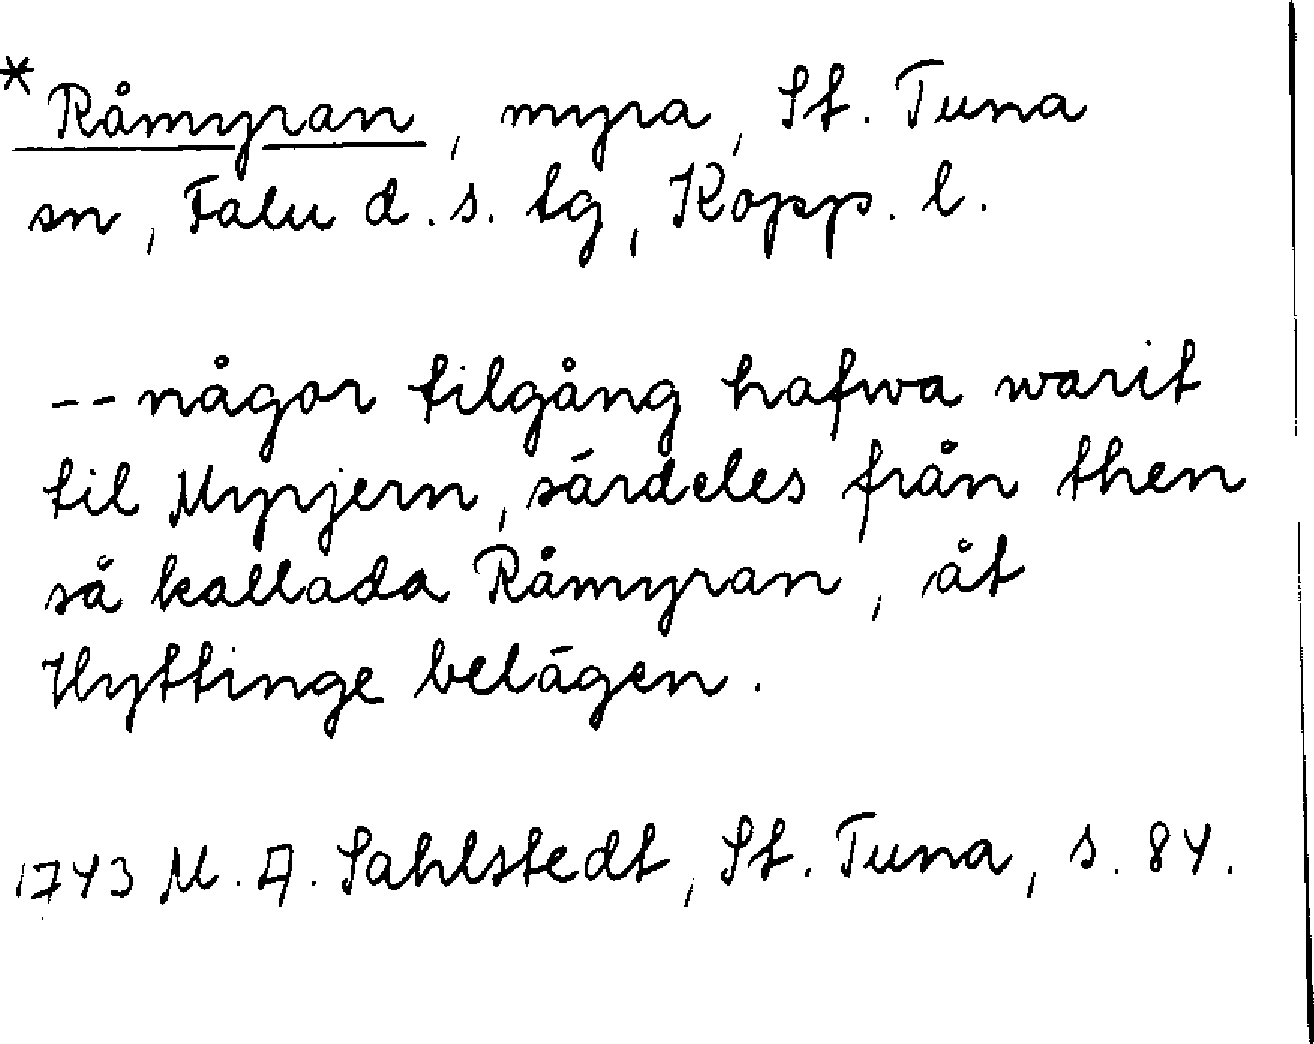 *Råmyran, myra, St. Tuna
sn, Falu d. s. tg, Kopp. l.
-- någor tilgång hafwa warit
til Myrjern, särdeles från then
så kallada Råmyran, åt
Hyttinge belägen.
1743 M. A. Sahlstedt, St. Tuna, s. 84.